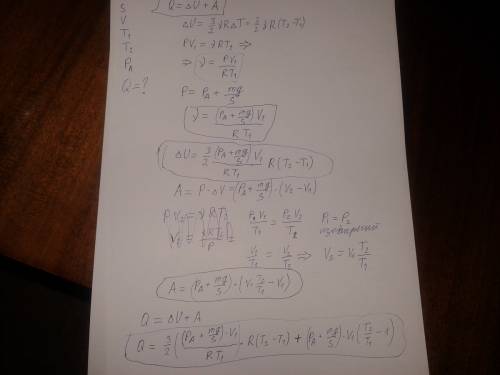 S
V
T₁
T₂
P_A
Q = ?
Q = ΔU + A
ΔU = 3/2 γRΔT = 3/2 γR(T₂-T₁)
PV₁ = γRT₁ ⇒
⇒ γ = PV₁/RT₁
P = P_A + mg/S
γ = (P_A + mg/S)V₁ / RT₁
ΔU = 3/2 (P_A + mg/S)V₁ / RT₁ · R(T₂-T₁)
A = P·ΔV = (P_A + mg/S)·(V₂-V₁)
PV₂ = γRT₂
V₂ = γRT₂/P
P₁V₁/T₁ = P₂V₂/T₂
P₁ = P₂
изобарный
V₁/T₁ = V₂/T₂ ⇒ V₂ = V₁ T₂/T₁
A = (P_A + mg/S)·(V₁ T₂/T₁ - V₁)
Q = ΔU + A
Q = 3/2 ((P_A + mg/S)·V₁ / RT₁) · R(T₂-T₁) + (P_A + mg/S)·V₁(T₂/T₁ - 1)